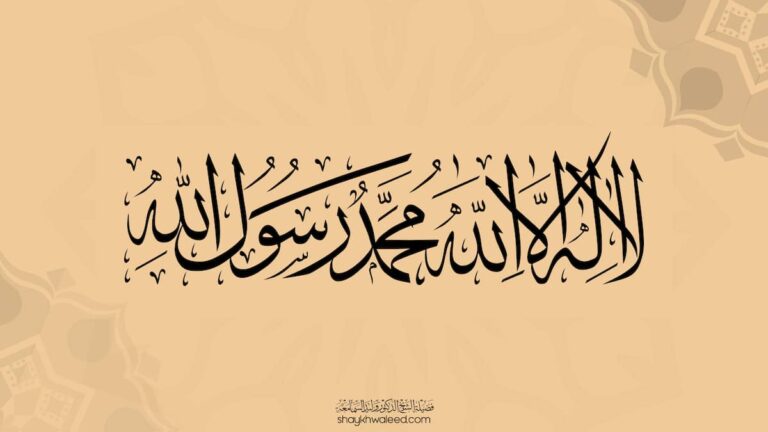 لا إله إلا الله محمد رسول الله
فضيلة الشيخ الدكتور وليد السامعة
shaykhwaleed.com